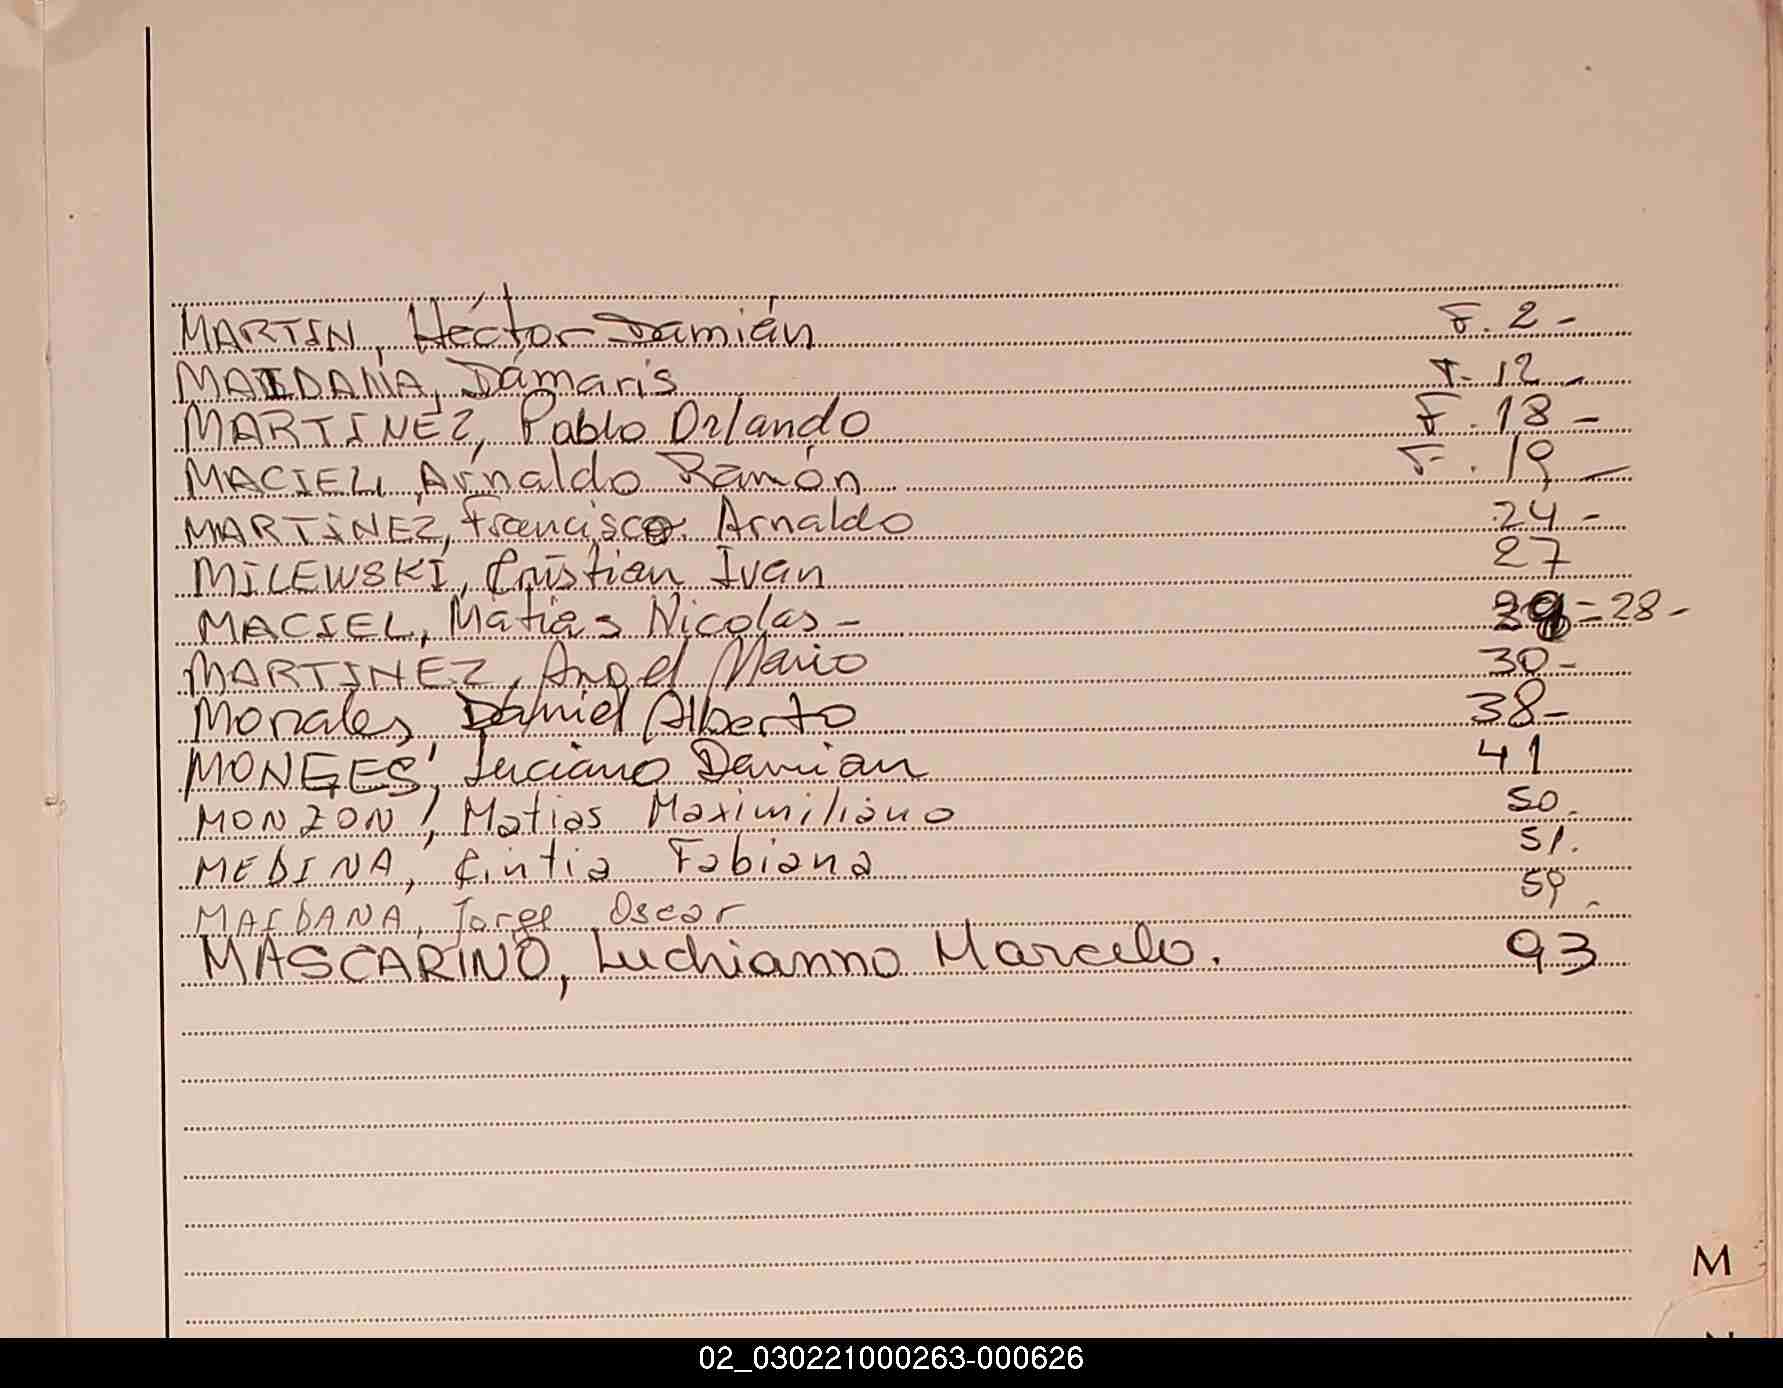 MARTIN, Héctor Damián F. 2 -
MAIDANA, Dámaris F. 12 -
MARTINEZ, Pablo Orlando F. 18 -
MACIEL, Arnaldo Ramón F. 19 -
MARTINEZ, Francisco Arnaldo 24 -
MILEWSKI, Cristian Ivan 27
MACIEL, Matias Nicolas - = 28 -
MARTINEZ, Angel Mario 30 -
Morales, Daniel Alberto 38 -
MONGES, Luciano Damian 41
MONZON, Matias Maximiliano 50.
MEDINA, Cintia Fabiana 51.
MAIDANA, Jorge Oscar 59.
MASCARINO, Luchianno Marcelo. 93
M
02_030221000263-000626